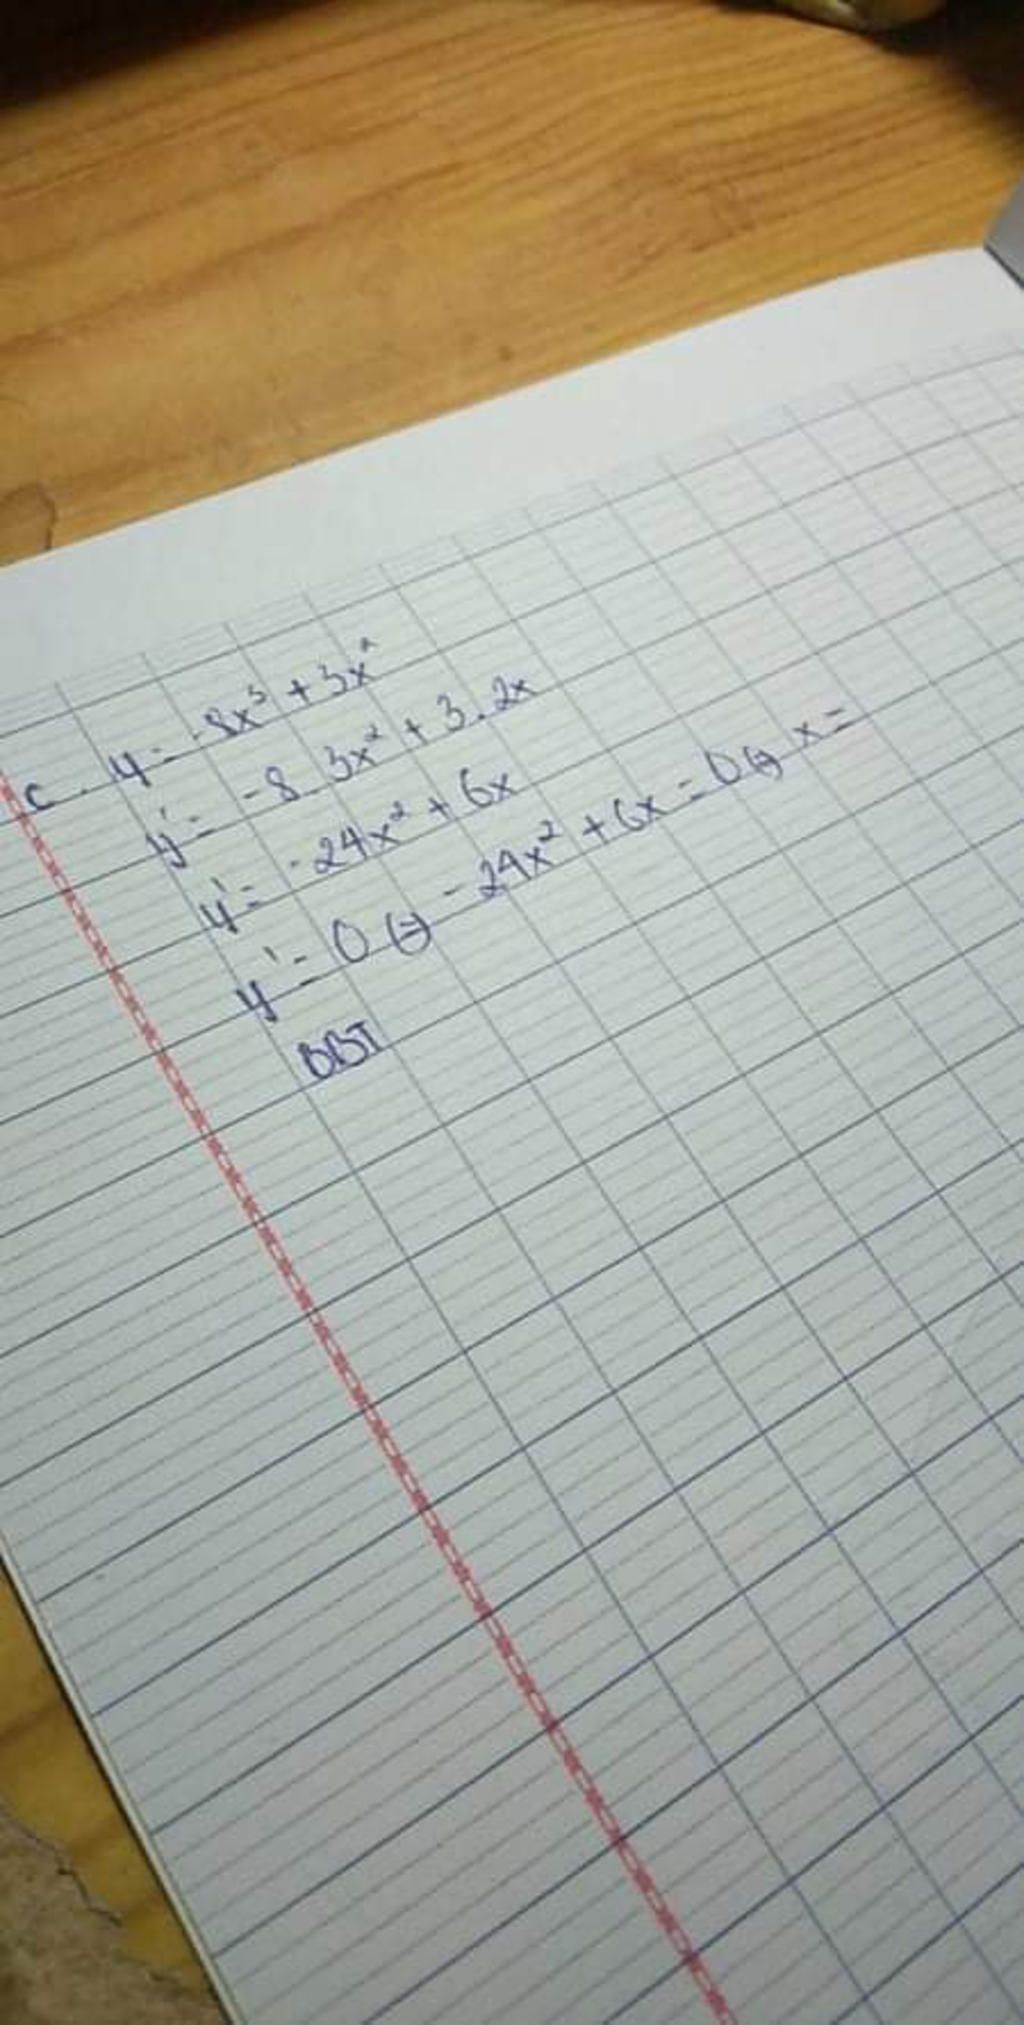 c. y = -8x³ + 3x²
y' = -8.3x² + 3.2x
y' = -24x² + 6x
y' = 0 ⇔ -24x² + 6x = 0 ⇔ x =
BBT